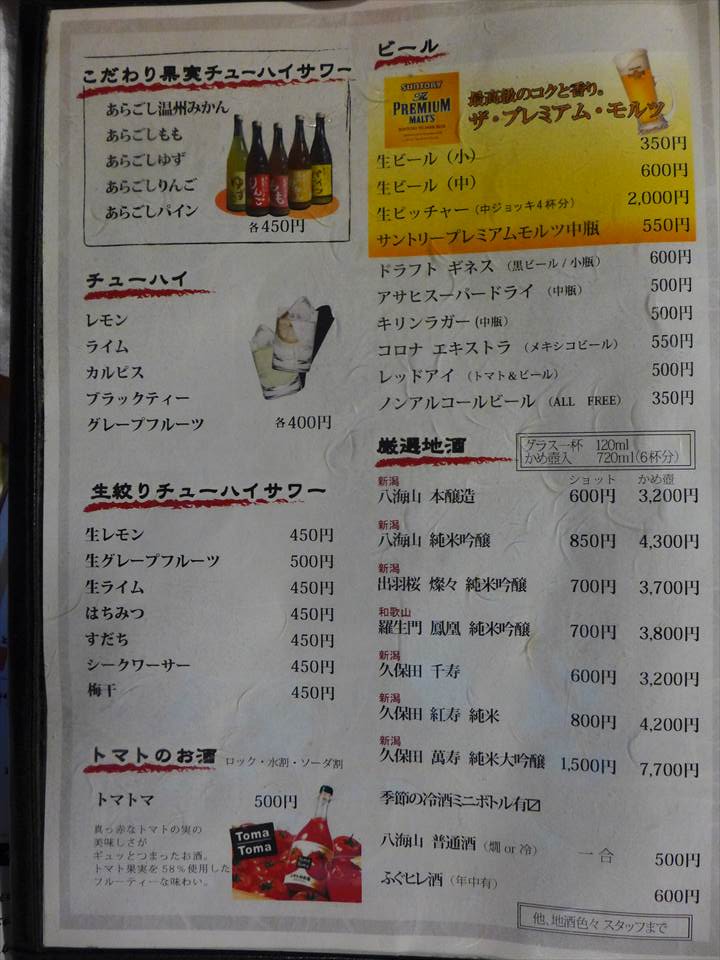 こだわり果実チューハイサワー
あらごし温州みかん
あらごしもも
あらごしゆず
あらごしりんご
あらごしパイン
ゆず
りんご
もも
各450円
チューハイ
レモン
ライム
カルピス
ブラックティー
グレープフルーツ
各400円
生絞りチューハイサワー
生レモン 450円
生グレープフルーツ 500円
生ライム 450円
はちみつ 450円
すだち 450円
シークワーサー 450円
梅干 450円
トマトのお酒 ロック・水割・ソーダ割
トマトマ 500円
真っ赤なトマトの実の
美味しさが
ギュッとつまったお酒。
トマト果実を58%使用した
フルーティーな味わい。
Toma
Toma
ビール
SUNTORY
The
PREMIUM
MALT'S
最高級のコクと香り。
ザ・プレミアム・モルツ
生ビール（小） 350円
生ビール（中） 600円
生ピッチャー（中ジョッキ4杯分） 2,000円
サントリープレミアムモルツ中瓶 550円
ドラフト ギネス （黒ビール / 小瓶） 600円
アサヒスーパードライ （中瓶） 500円
キリンラガー (中瓶) 500円
コロナ エキストラ （メキシコビール） 550円
レッドアイ （トマト＆ビール） 500円
ノンアルコールビール （ALL FREE） 350円
厳選地酒
グラス一杯 120ml
かめ壺入 720ml（6杯分）
ショット かめ壺
新潟
八海山 本醸造 600円 3,200円
新潟
八海山 純米吟醸 850円 4,300円
新潟
出羽桜 燦々 純米吟醸 700円 3,700円
和歌山
羅生門 鳳凰 純米吟醸 700円 3,800円
新潟
久保田 千寿 600円 3,200円
新潟
久保田 紅寿 純米 800円 4,200円
新潟
久保田 萬寿 純米大吟醸 1,500円 7,700円
季節の冷酒ミニボトル有〼
八海山 普通酒（燗 or 冷） 一合 500円
ふぐヒレ酒（年中有） 600円
他、地酒色々 スタッフまで